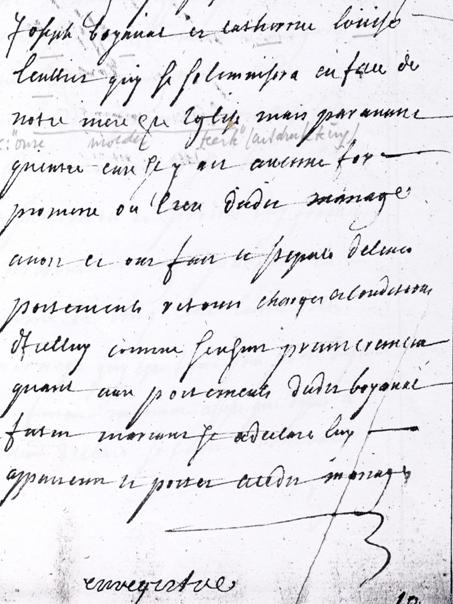 Joseph boyaval et catherine louise
Leuttre quy se solemnisera en face de
notre mere Ste Eglise mais paravant
quencore quil y ait aucune foy
promesse ou lien dudit mariage
avoir et ont fait et stipulé de leurs
portements retours charges et conditions
d'icelluy comme sensuit premierement
quant aux portements dudit boyaval
futur mariant il a declaré luy
appartenir et porter audit mariage
enregistré